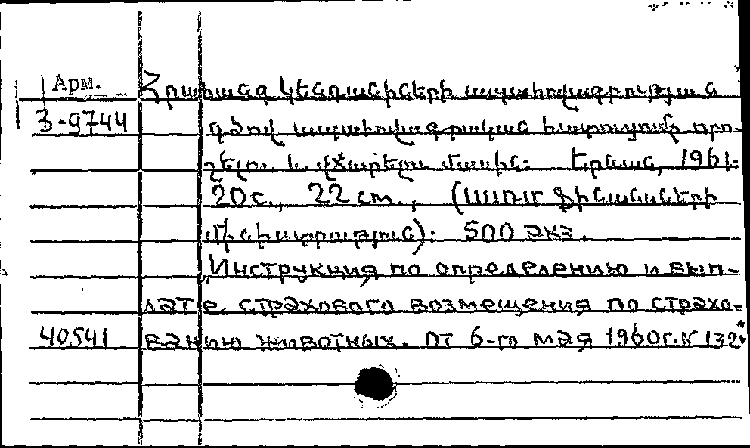 Арм. Հրահանգ կենդանիների ապահովագրության
3-9744 գծով ապահովագրական հատուցումն որո-
շելու և վճարելու մասին: Երևան, 1961.
20 с., 22 cm., (ՍՍՌՄ Ֆինանսների
մինիստրություն): 500 экз.
Инструкция по определению и вып-
лате страхового возмещения по страхо-
40541 ванию животных. От 6-го мая 1960г. N 132